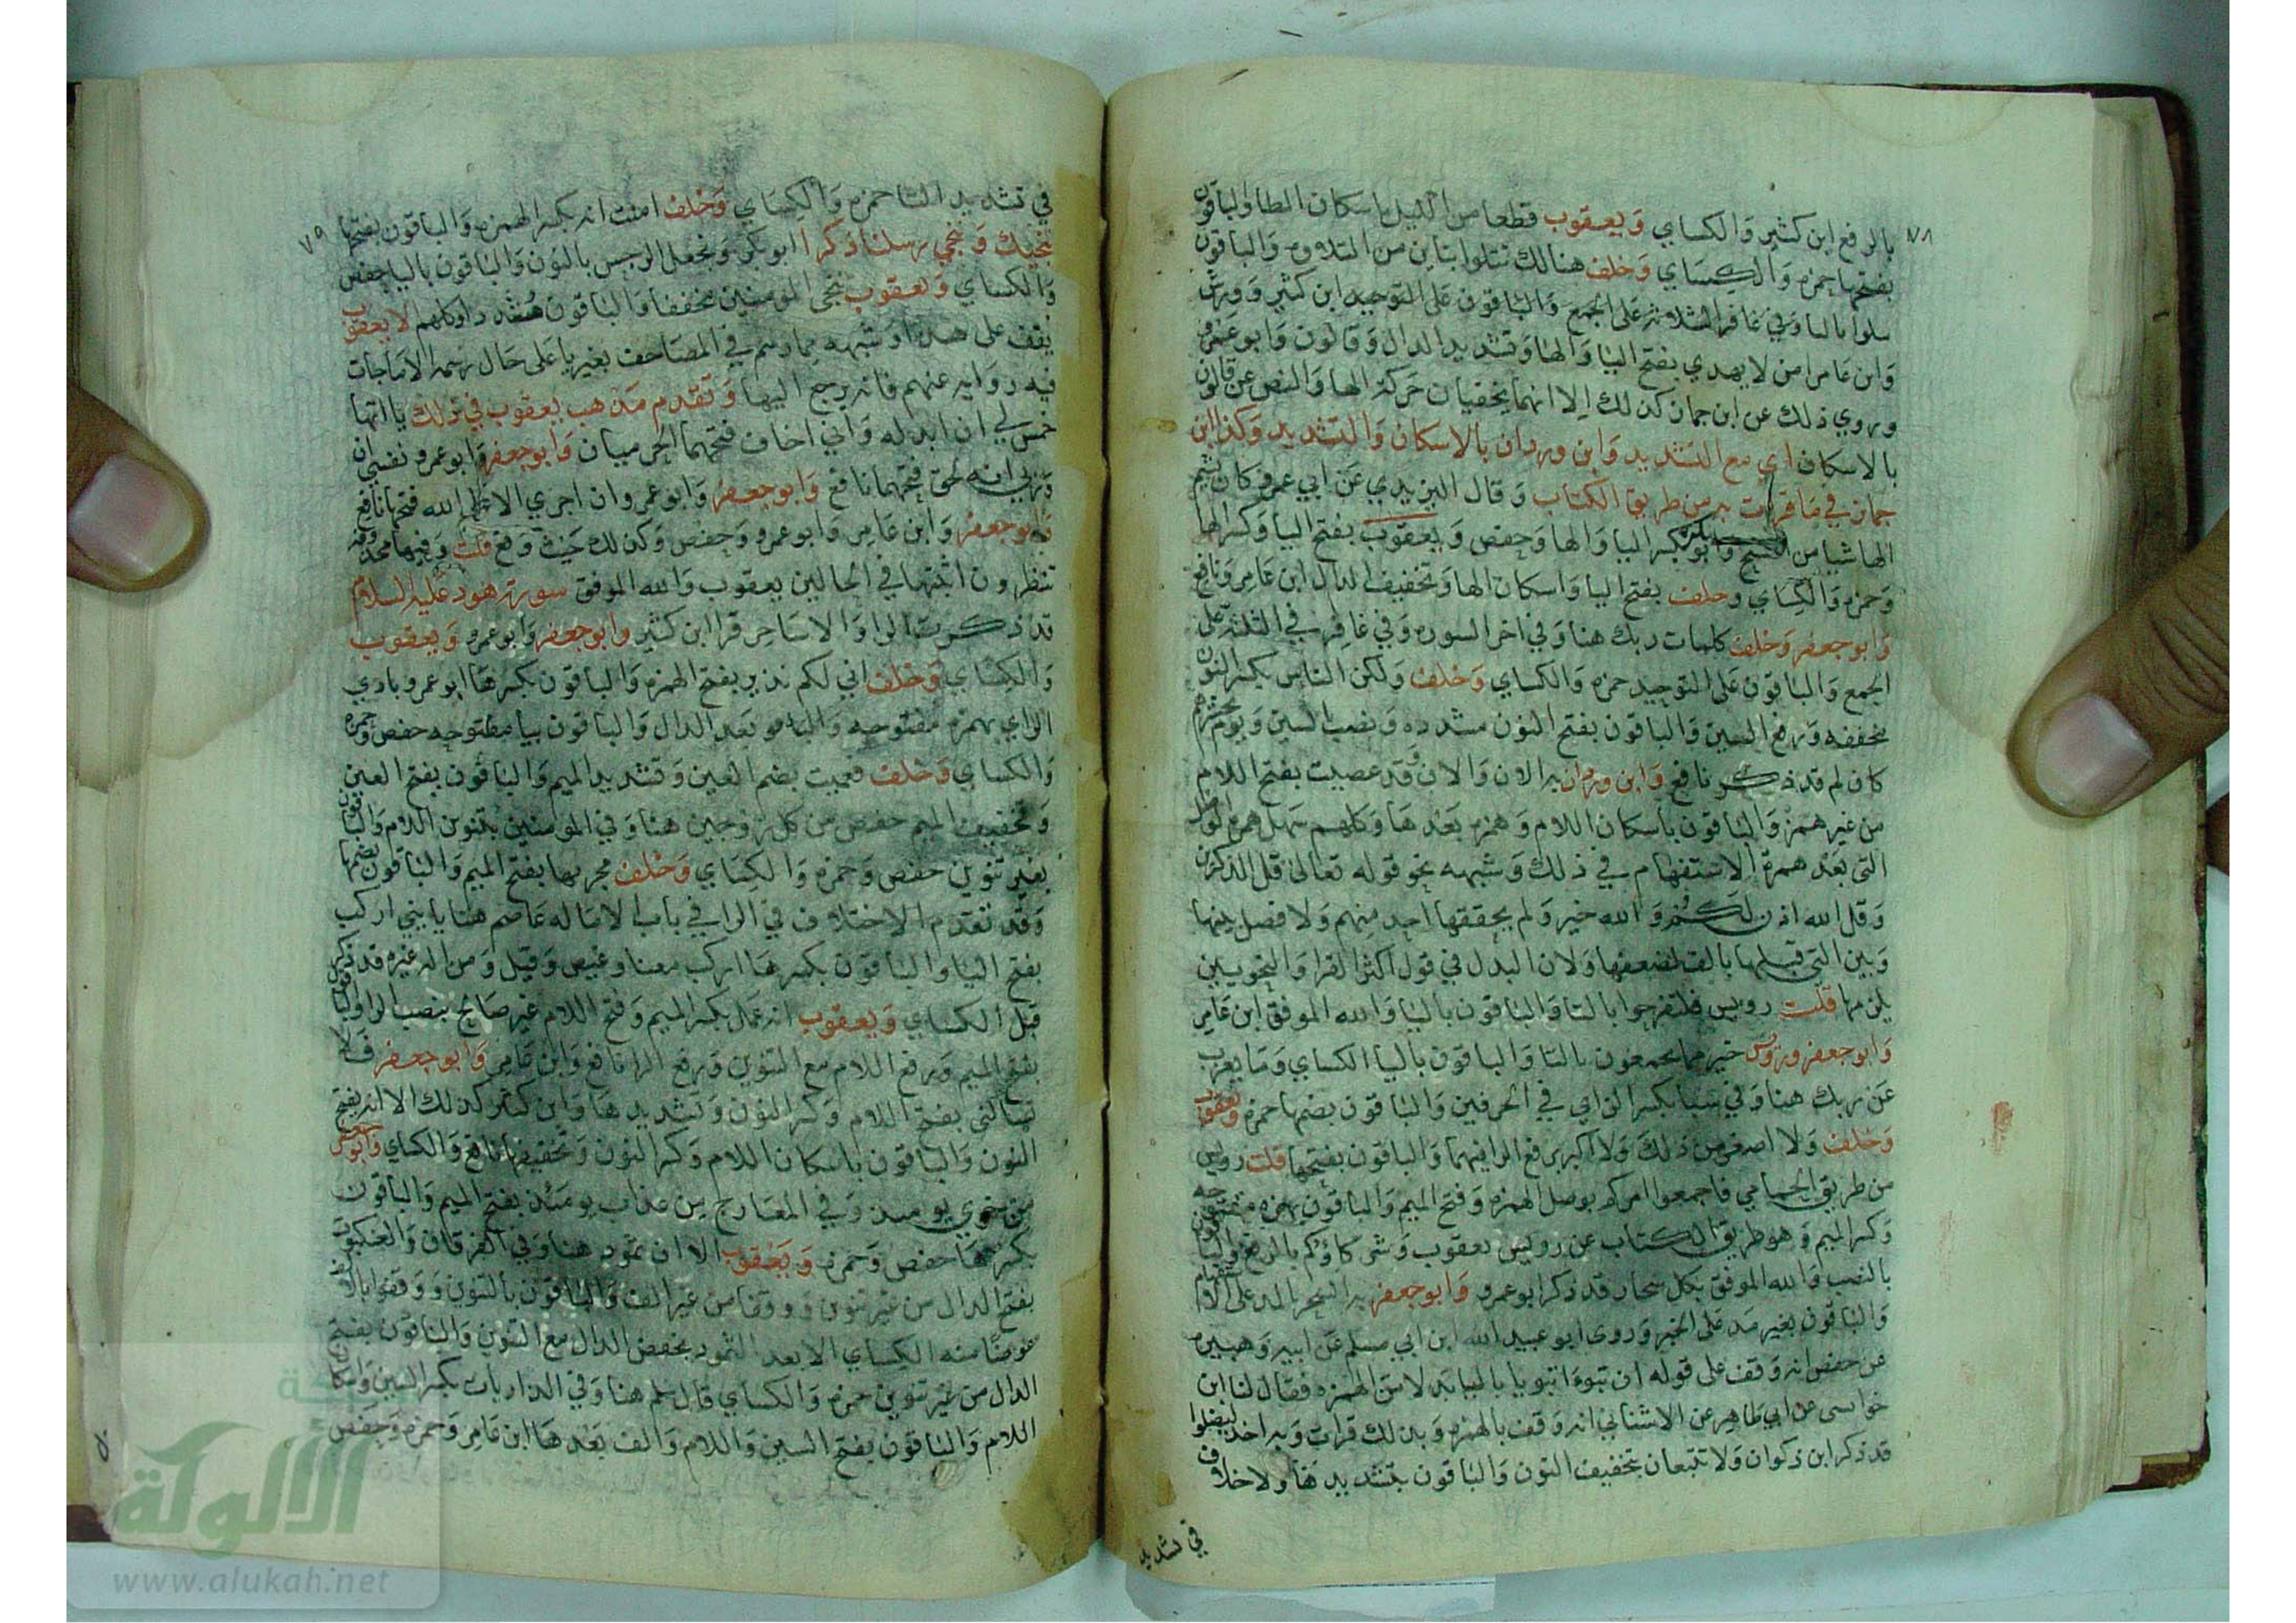 ٧٨
بالرفع ابن كثير والكساي ويعقوب قطعا من الليل باسكان الطا والباقون
بفتحها حمزه والكساي وخلف هنالك تتلوا بتاين من التلاوه والباقون
بالبا وفي غافر الثلاثه على الجمع والباقون على التوحيد ابن كثير وورش
وابن عامر امن لا يهدي بفتح اليا والها وتشديد الدال وقالون وابو عمرو
وروي ذلك عن ابن جماز كذلك الا انهما يخفيان حركة الها والنص عن قالون
بالاسكان اي مع التشديد وابن وردان بالاسكان والتشديد وكذا ابن
جماز في ما قرات به من طريق الكتاب وقال اليزيدي عن ابي عمرو كان يشم
الها شيا من الفتح وابو بكر بكسر اليا والها وحفص ويعقوب بفتح اليا وكسر الها
وحمزه والكساي وخلف بفتح اليا واسكان الها وتخفيف الدال ابن عامر ونافع
وابو جعفر وخلف كلمات ربك هنا وفي اخر السوره وفي غافر في الثلثه على
الجمع والباقون على التوحيد حمزه والكساي وخلف ولكن الناس بكسر النون
مخففه ورفع السين والباقون بفتح النون مشدده ونصب السين ويوم نحشرهم
كان لم قد ذكر نافع وابن وردان به الان والان وقد عصيت بفتح اللام
من غير همز والباقون باسكان اللام وهمزه بعدها وكلهم سهل همزة الوصل
التي بعد همزة الاستفهام في ذلك وشبهه نحو قوله تعالى قل الذكرين
وقل الله اذن لكم والله خير ولم يحققها احد منهم ولا فصل بينها
وبين التي قبلها بالف لضعفها ولان البدل في قول اكثر القرا والنحويين
يلزمها قلت رويس فلتفرحوا بالتا والباقون باليا والله الموفق ابن عامر
وابو جعفر ورويس خير مما يجمعون بالتا والباقون باليا الكساي وما يعزب
عن ربك هنا وفي سبا بكسر الزاي في الحرفين والباقون بضمها حمزه ويعقوب
وخلف ولا اصغر من ذلك ولا اكبر برفع الرا فيهما والباقون بفتحها قلت رويس
من طريق الحمامي فاجمعوا امركم بوصل الهمزه وفتح الميم والباقون بهمزه مفتوحه
وكسر الميم وهو طريق الكتاب عن رويس يعقوب وشركاؤكم بالرفع والباقون
بالنصب والله الموفق بكل سحار قد ذكر ابو عمرو وابو جعفر به السحر بالمد على الاستفهام
والباقون بغير مد على الخبر وروى ابو عبيد الله ابن ابي مسلم عن ابيه وهبيره
عن حفص انه وقف على قوله ان تبوءا تبويا بالياء بدلا من الهمزه فقال لنا ابن
خواستى عن ابي طاهر عن الاشناني انه وقف بالهمزه وبذلك قرات وبه اخذ ليضلوا
قد ذكر ابن ذكوان ولا تتبعان بتخفيف النون والباقون بتشديدها ولا خلاف
في تشديد
٧٩
في تشديد التا حمزه والكساي وخلف امنت انه بكسر الهمزه والباقون بفتحها
ننجيك وننجي رسلنا ذكرا ابو بكر ونجعل الرجس بالنون والباقون باليا حفص
والكساي ويعقوب ننجي المومنين مخففا والباقون مشددا وكلهم الا يعقوب
يقف على هذا وشبهه مما رسم في المصاحف بغير يا على حال رسمه الا ما جات
فيه روايه عنهم فانه يرجع اليها وتقدم مذهب يعقوب في ذلك يااتها
خمس لي ان ابدله واني اخاف فتحهما الحرميان وابو جعفر وابو عمرو نفسي ان
وربي انه لحق فتحهما نافع وابو جعفر وابو عمرو ان اجري الا على الله فتحها نافع
وابو جعفر وابن عامر وابو عمرو وحفص وكذلك حيث وقع قلت وفيها محذوفه
تنظرون اثبتها في الحالين يعقوب والله الموفق سورة هود عليه السلام
قد ذكرت الرا والا ساحر قرا ابن كثير وابو جعفر وابو عمرو ويعقوب
والكساي وخلف اني لكم نذير بفتح الهمزه والباقون بكسرها ابو عمرو بادي
الراي بهمزه مفتوحه بعد الدال والباقون بيا مفتوحه حفص وحمزه
والكساي وخلف فعميت بضم العين وتشديد الميم والباقون بفتح العين
وتخفيف الميم حفص من كل زوجين هنا وفي المومنين بتنوين اللام والباقون
بغير تنوين حفص وحمزه والكساي وخلف مجريها بفتح الميم والباقون بضمها
وقد تقدم الاختلاف في الرا في باب الاماله عاصم هنا يا بني اركب
بفتح اليا والباقون بكسرها اركب معنا وغيض وقيل ومن اله غيره قد ذكر
قبل الكساي ويعقوب انه عمل بكسر الميم وفتح اللام غير صالح بنصب الرا والباقون
بفتح الميم ورفع اللام مع التنوين ورفع الرا نافع وابن عامر وابو جعفر فلا
تسالني بفتح اللام وكسر النون وتشديدها وابن كثير كذلك الا انه يفتح
النون والباقون باسكان اللام وكسر النون وتخفيفها نافع والكساي وابو جعفر
من خزي يومئذ وفي المعارج من عذاب يومئذ بفتح الميم والباقون
بكسرها حفص وحمزه ويعقوب الا ان ثمود هنا وفي الفرقان والعنكبوت
بفتح الدال من غير تنوين ووقفا من غير الف والباقون بالتنوين ووقفوا بالالف
عوضا منه الكساي الا بعدا لثمود بخفض الدال مع التنوين والباقون بفتح
الدال من غير تنوين حمزه والكساي قال سلم هنا وفي الذاريات بكسر السين واسكان
اللام والباقون بفتح السين واللام والف بعدها ابن عامر وحمزه وحفص
الألوكة
www.alukah.net